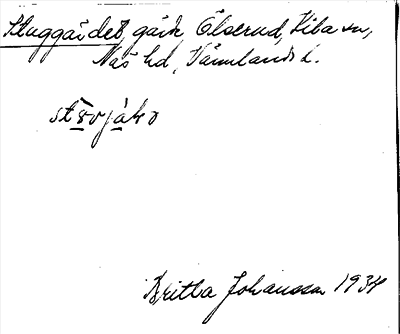 Stuggärdet, gård, Ölserud, Kila sn,
Näs hd, Värmlands l.
Britta Johansson 1934